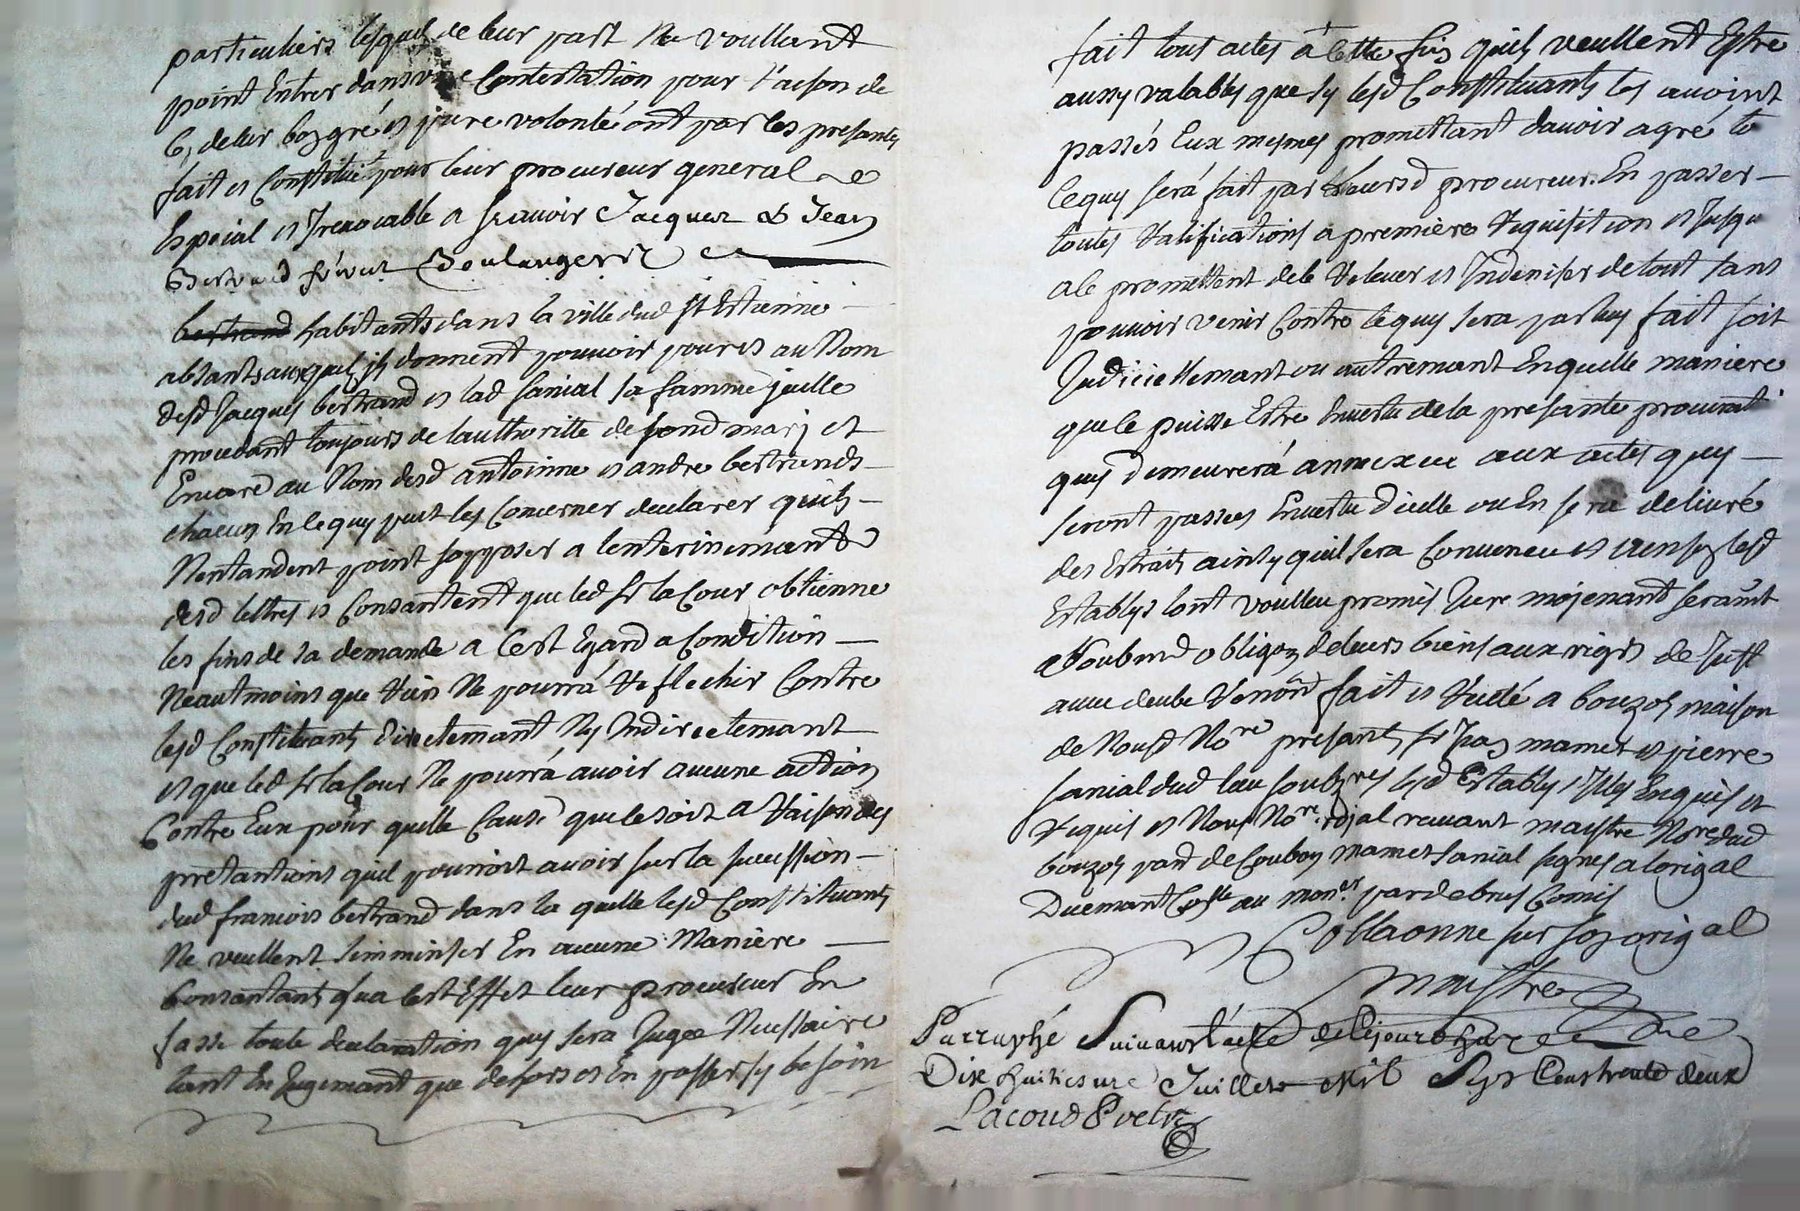 particuliers lesquels de leur part Ne voullant
point Entrer dans une Contestation pour raison de
Ce, de leur bon gré et pure volonté ont par les presantes
fait et Constitué pour leur procureur general et
Especial et Irevocable a scavoir Jacques & Jean
Bertrand freres Boulangers
bertrand habitants dans la ville dud st Estienne
absants auxquels ils donnent pouvoir pour et au Nom
desd Jacques bertrand et lad sanial sa famme jcelle
procedant toujours de lauthoritte de sond marj et
Encore au Nom desd antoinne et andre bertrands
chacun En le quy peut les Concerner declarer quils
Nentandent point sopposer a lenterinemant
desd lettres et Consantent que led sr la Cour obtienne
les fins de sa demande a Cest Egard a Condition
Neautmoins que rien Ne pourrá reflechir Contre
lesd Constituants directemant Ny Indirectemant
et que led sr la Cour Ne pourrá avoir aucune action
Contre Eux pour quelle Cause que le soit a raison des
pretantions quil pouroit avoir sur la sucession
dud francois bertrand dans la quelle lesd Constituants
Ne veullent simminser En aucune Maniere
Consantants qua Cest Effet leur procureur En
fasse toute declaration quy sera Jugée Necessaire
tant En Jugemant que dehors et En passer sy besoin
fait tous actes á Cette fin quils veullent Estre
aussy valables que sy lesd Constituants les avoint
passés Eux mesmes promettant davoir agré to
Ce quy será fait par leursd procureur. En passer
toutes ratifications a premiere requisition et Jusqu
a le promettent de le relever et Indeniser de tout sans
pouvoir venir Contre Ce quy sera par luy fait soit
Judiciellemant ou autremant En quelle maniere
que le puisse Estre En vertu de la presante procurati
quy demeurerá annexée aux actes quy
seront passes En vertu dicelle ou En sera delivré
des Extraits ainsy quil sera Convenu et ainsy lesd
Establys lont voulleu promis Jure mojenant seramt
Et soubmd obligon de leurs biens aux rigrs de Just
avec deube Renond fait et recité a bouzol maison
de Nousd Nore presants sr Jean mamet et pierre
sanial dud lieu soubznes lesd Establys Illes Enquis et
requis et Nous Nore rojal recevant maistre Nore dud
bouzol pard de Coubon mamet sanial signes a lorigal
Duemant Colle au moner par debues Comis
Collaonne sur son original
Maistre
Parraphé Suivant lacte de Cejourdhuy
Dix huitiesme Juillet Mil Sept Cent trente deux
Lacour